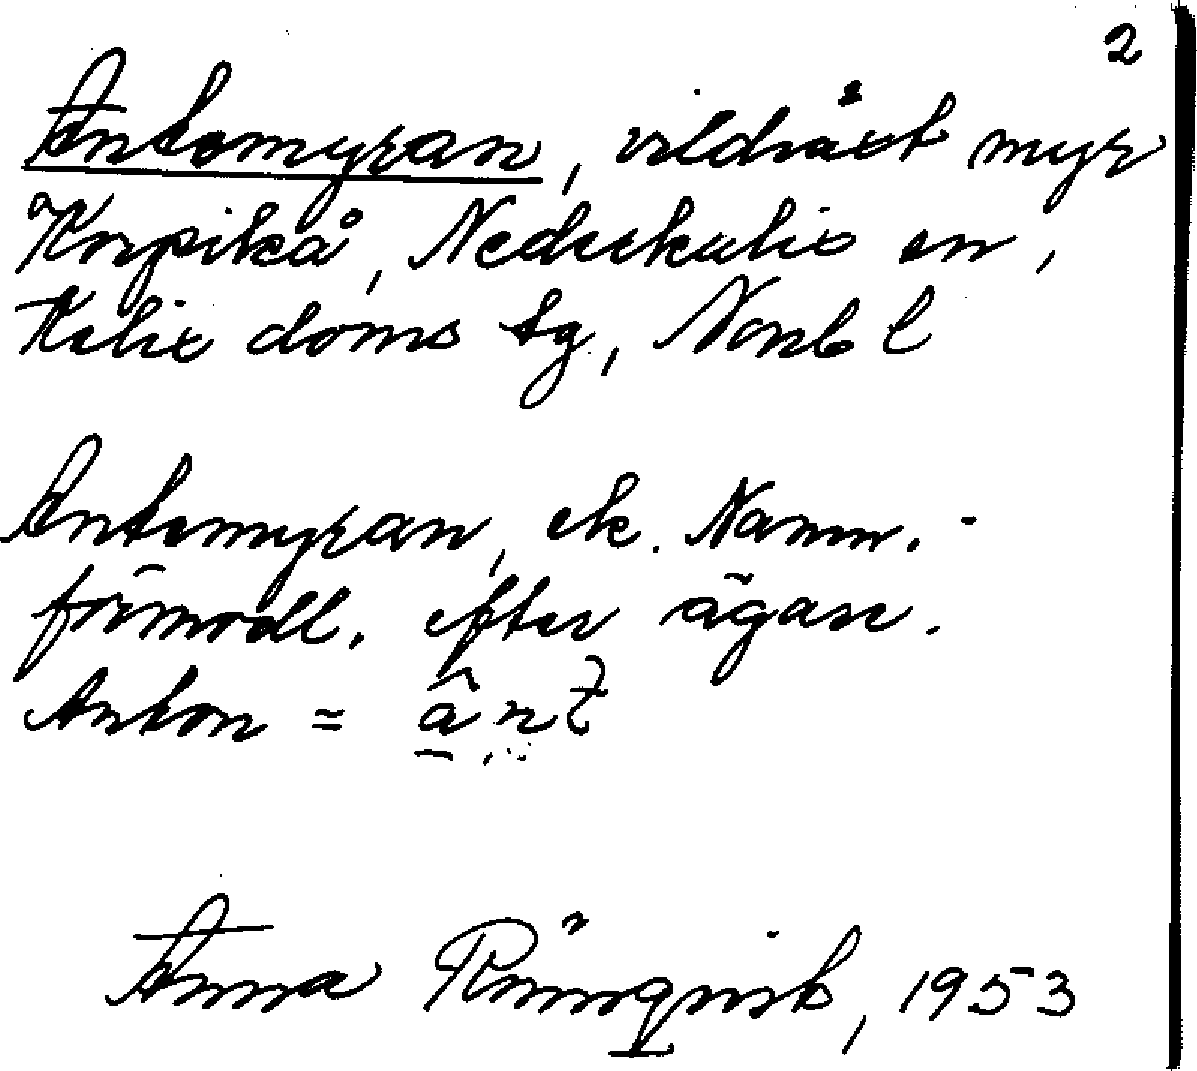 2
Antomyran, vildväxt myr
Korpikå, Nederkalix sn,
Kalix doms tg, Norrb l
Antomyran, ek. Namn.
förmodl. efter ägare.
Anton =
Anna Rönnqvist, 1953